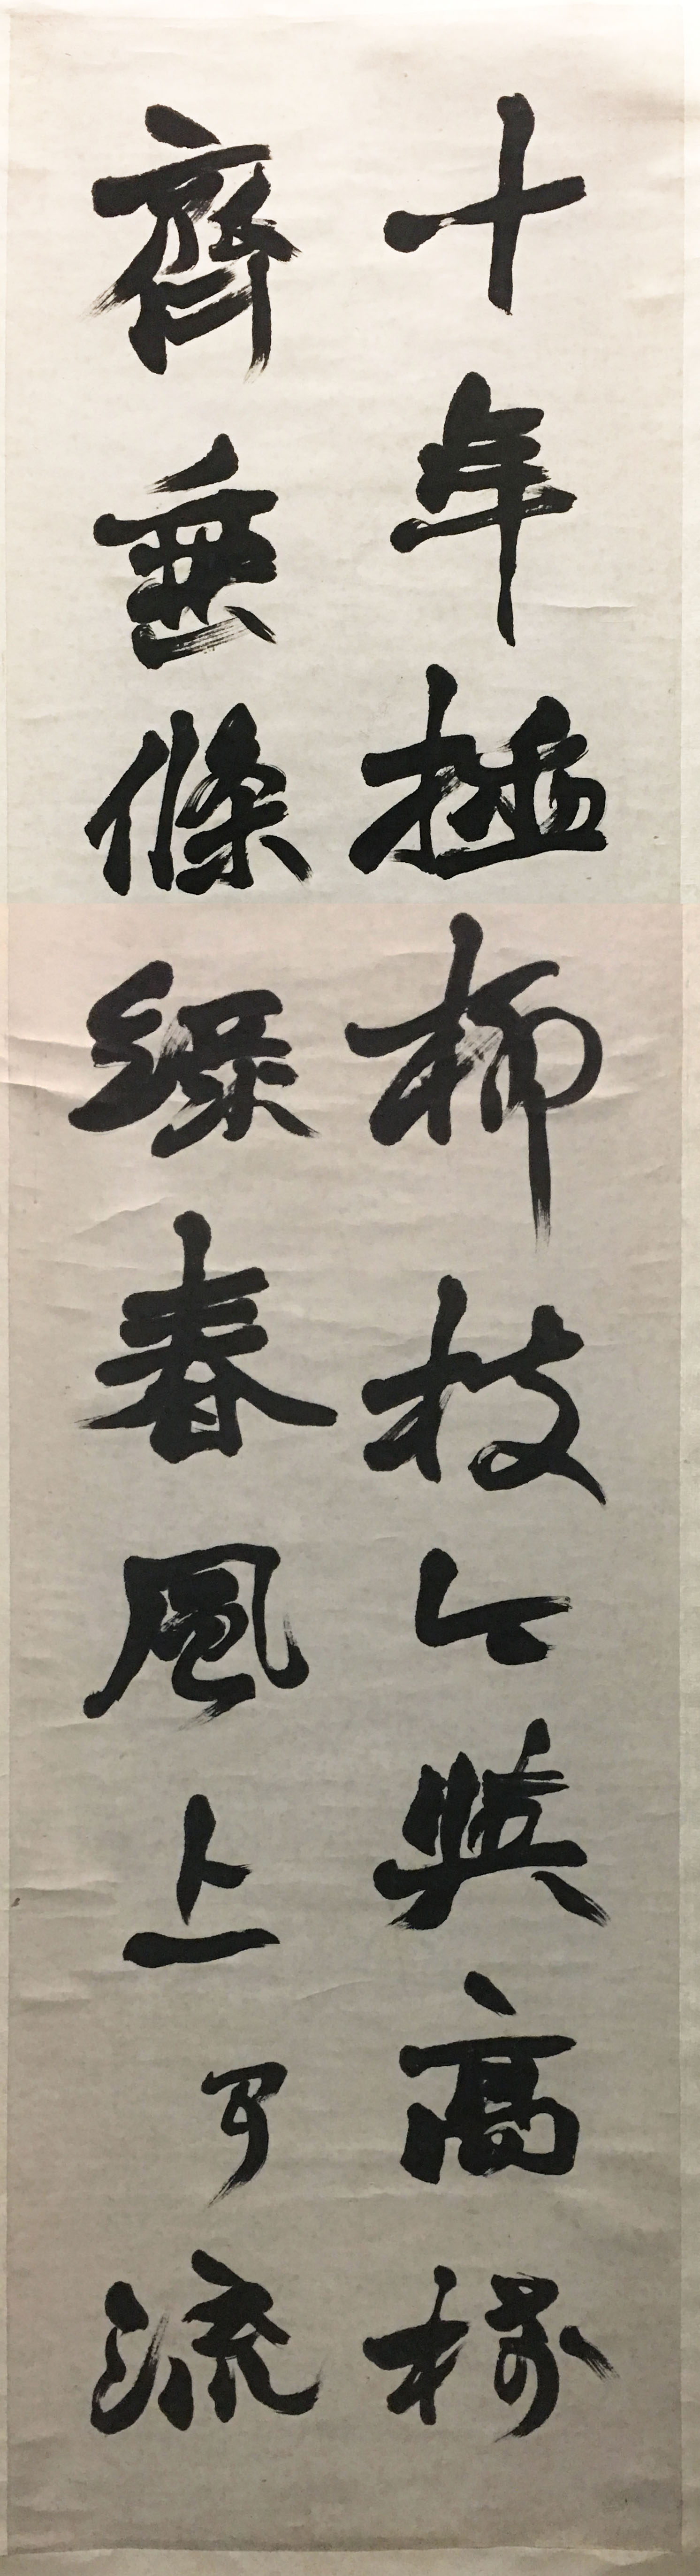 十年插柳枝今與高
齊垂條綠春風上可流